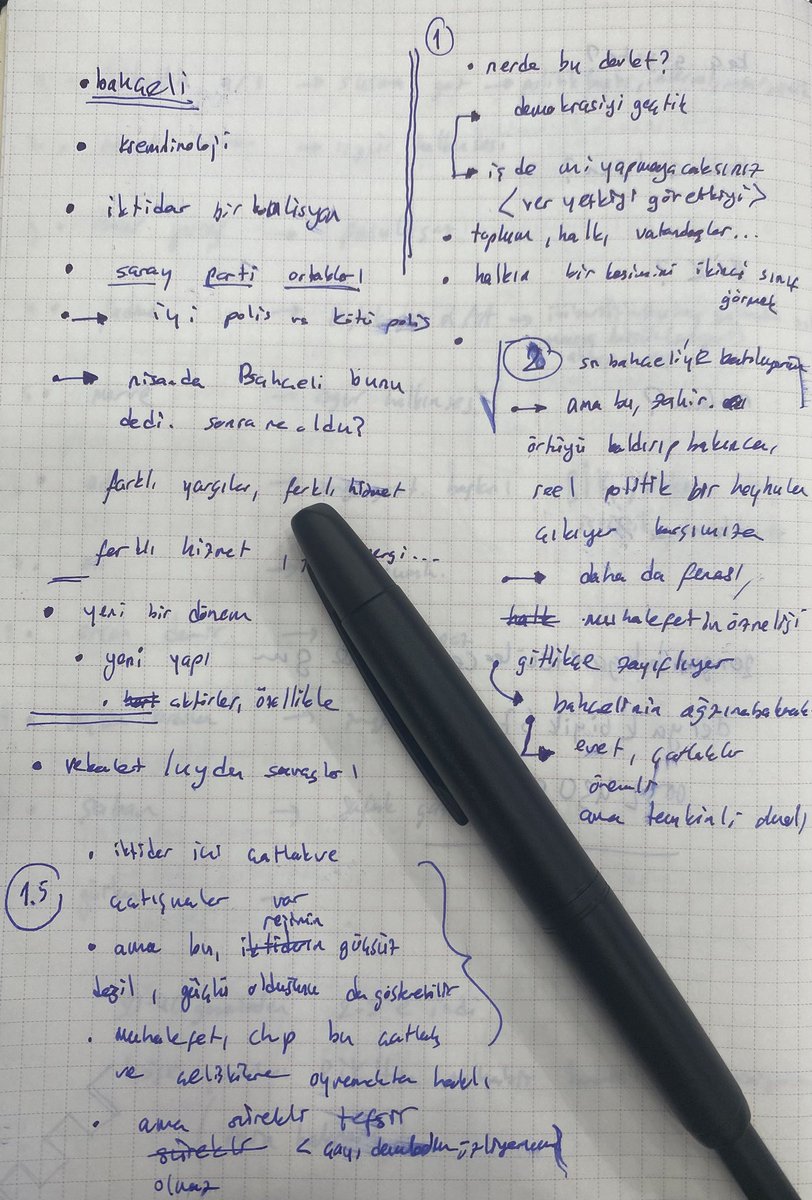 • bahçeli
• kremlinoloji
• iktidar bir koalisyon
• saray parti ortaklar
• → iyi polis ve kötü polis
• → nisanda Bahçeli bunu
dedi. sonra ne oldu?
farklı yargılar, farklı hizmet
farklı hizmet
• yeni bir dönem
• yeni yapı
• aktörler, özellikle
• vekalet / uydu savaşlar
1.5
• iktidar içi çatlak ve
çatışmalar var
rejimin
• ama bu, iktidarın güçsüz
değil, güçlü olduğunu da gösterebilir
• muhalefet, chp bu çatlak
ve çelişkilere oynamakta haklı
• ama sürekli tefsir
sürekli < çayı
olmaz
1
• nerde bu devlet?
demokrasiyi geçtik
→ iş de mi yapmayacaksınız
<ver yetkiyi gör etkiyi>
• toplum, halk, vatandaşlar...
• halkın bir kesimini ikinci sınıf
görmek
2 sn bahçeliye katılıyorum
• → ama bu, zahir.
örtüyü kaldırıp bakınca,
reel politik bir heyhula
çıkıyor karşımıza
• → daha da fenası,
halk muhalefetin özneliği
gittikçe zayıflıyor
→ bahçelinin ağzına bakmak
→ evet, çatlaklar
önemli
ama temkinli